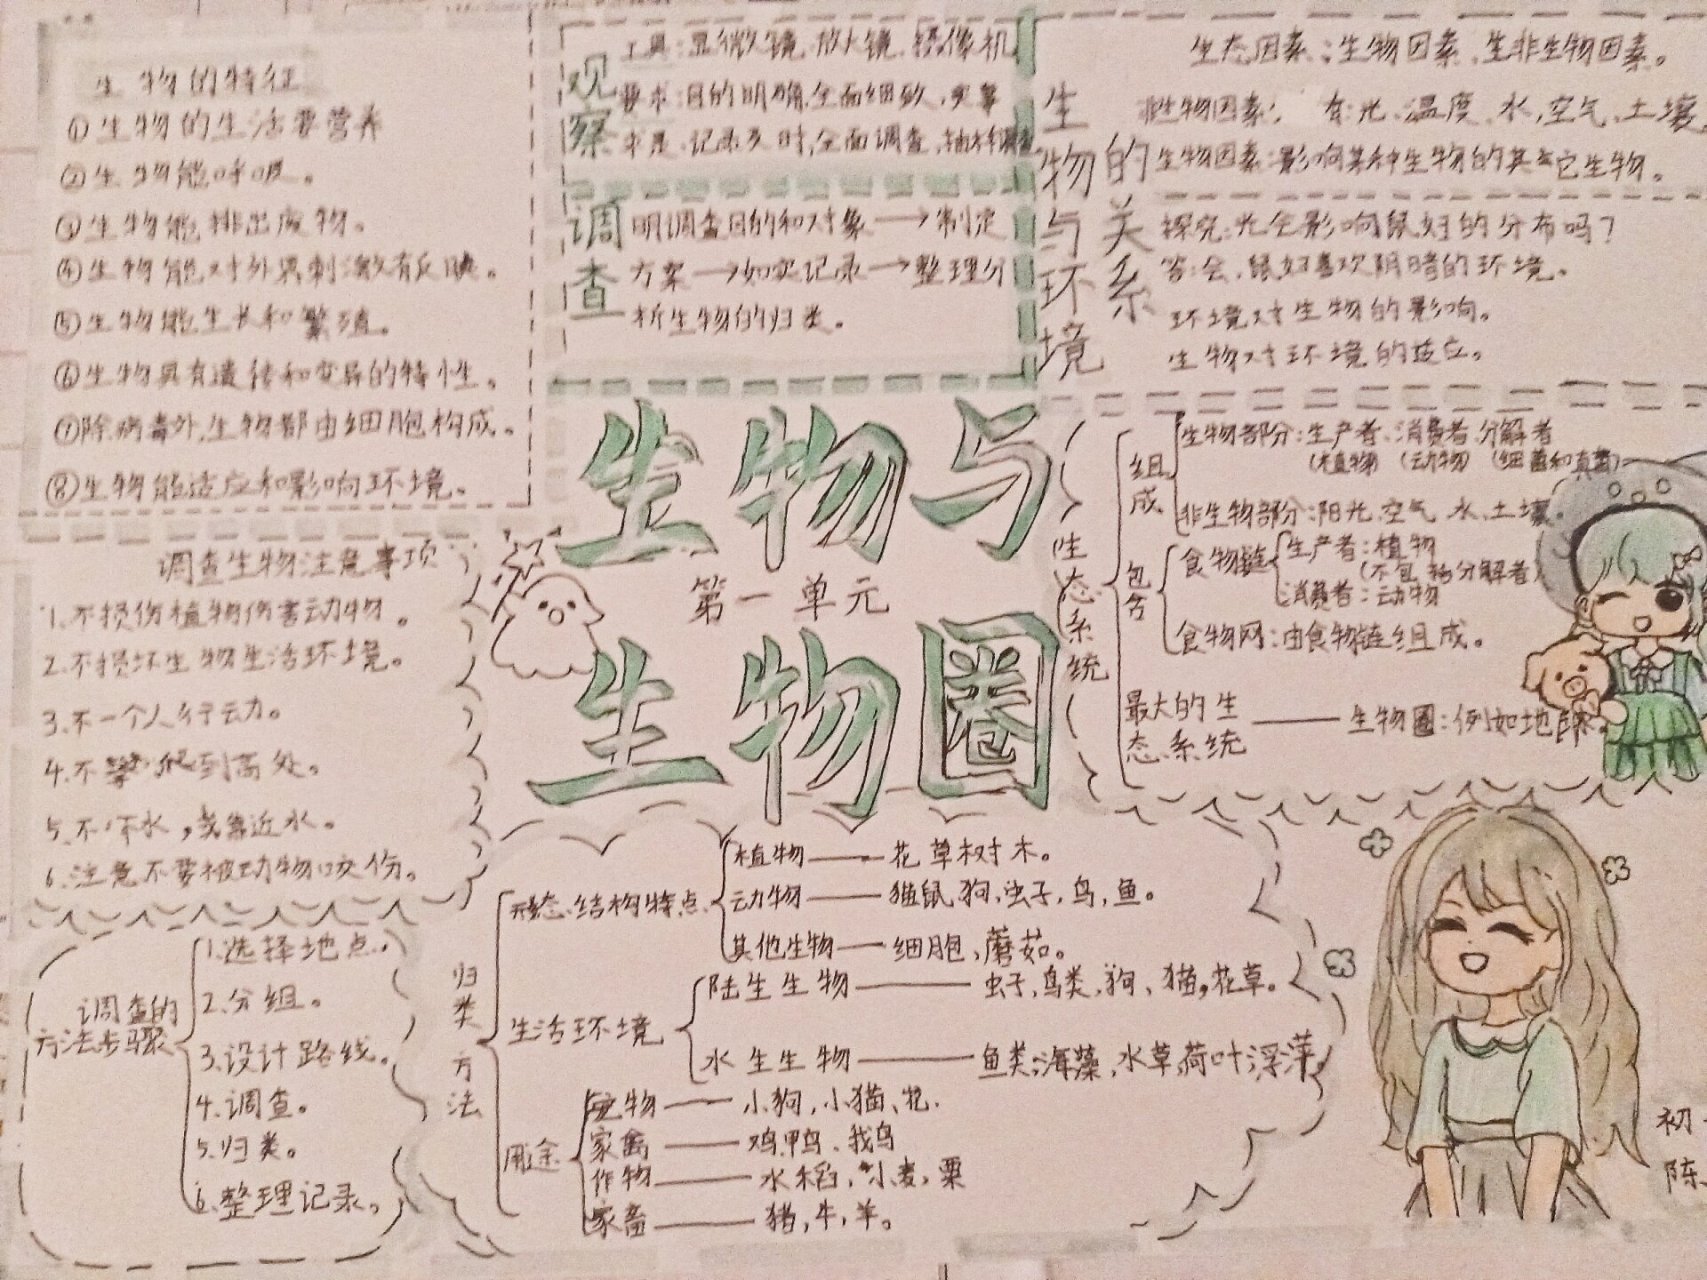 生物的特征
①生物的生活要营养
②生物能呼吸。
③生物能排出废物。
④生物能对外界刺激有反映。
⑤生物能生长和繁殖。
⑥生物具有遗传和变异的特性。
⑦除病毒外,生物都由细胞构成。
⑧生物能适应和影响环境。
观察
工具:显微镜、放大镜、摄像机
要求:目的明确,全面细致,实事
求是、记录及时,全面调查,抽样调查
调查
明调查目的和对象→制定
方案→如实记录→整理分
析生物的归类。
生物与环境的关系
生态因素:生物因素、生非生物因素。
非生物因素: 有:光、温度、水,空气、土壤
生物因素:影响某种生物的其它生物。
探究:光会影响鼠妇的分布吗?
答:会,鼠妇喜欢阴暗的环境。
环境对生物的影响。
生物对环境的适应。
生物与
第一单元
生物圈
调查生物注意事项
1.不损伤植物伤害动物。
2.不损坏生物生活环境。
3.不一个人行动。
4.不攀爬到高处。
5.不下水,或靠近水。
6.注意不要被动物咬伤。
生态系统
组成
生物部分:生产者、消费者、分解者
(植物) (动物) (细菌和真菌)
非生物部分:阳光、空气、水、土壤。
包含
食物链
生产者:植物
(不包括分解者)
消费者:动物
食物网:由食物链组成。
最大的生态系统——生物圈:例如地球。
调查的方法步骤
1.选择地点。
2.分组。
3.设计路线。
4.调查。
5.归类。
6.整理记录。
归类方法
形态、结构特点
植物——花草树木。
动物——猫鼠,狗,虫子,鸟,鱼。
其他生物——细胞、蘑菇。
生活环境
陆生生物——虫子,鸟类,狗、猫,花草。
水生生物——鱼类,海藻,水草,荷叶浮萍
用途
宠物——小狗,小猫、花.
家禽——鸡,鸭、鹅
作物——水稻,小麦,粟
家畜——猪,牛,羊。
初
陈